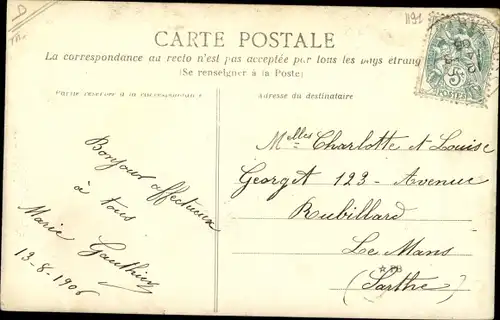 1191
CARTE POSTALE
La correspondance au recto n'est pas acceptée par tous les pays étrang
(Se renseigner à la Poste)
Partie réservée à la correspondance
Adresse du destinataire
5c
POSTES
Bonjour affectueux
à tous
Marie Gauthier
13-8-1906
Melles Charlotte et Louise
Georget 123 - Avenue
Rubillard
Le Mans
(Sarthe)